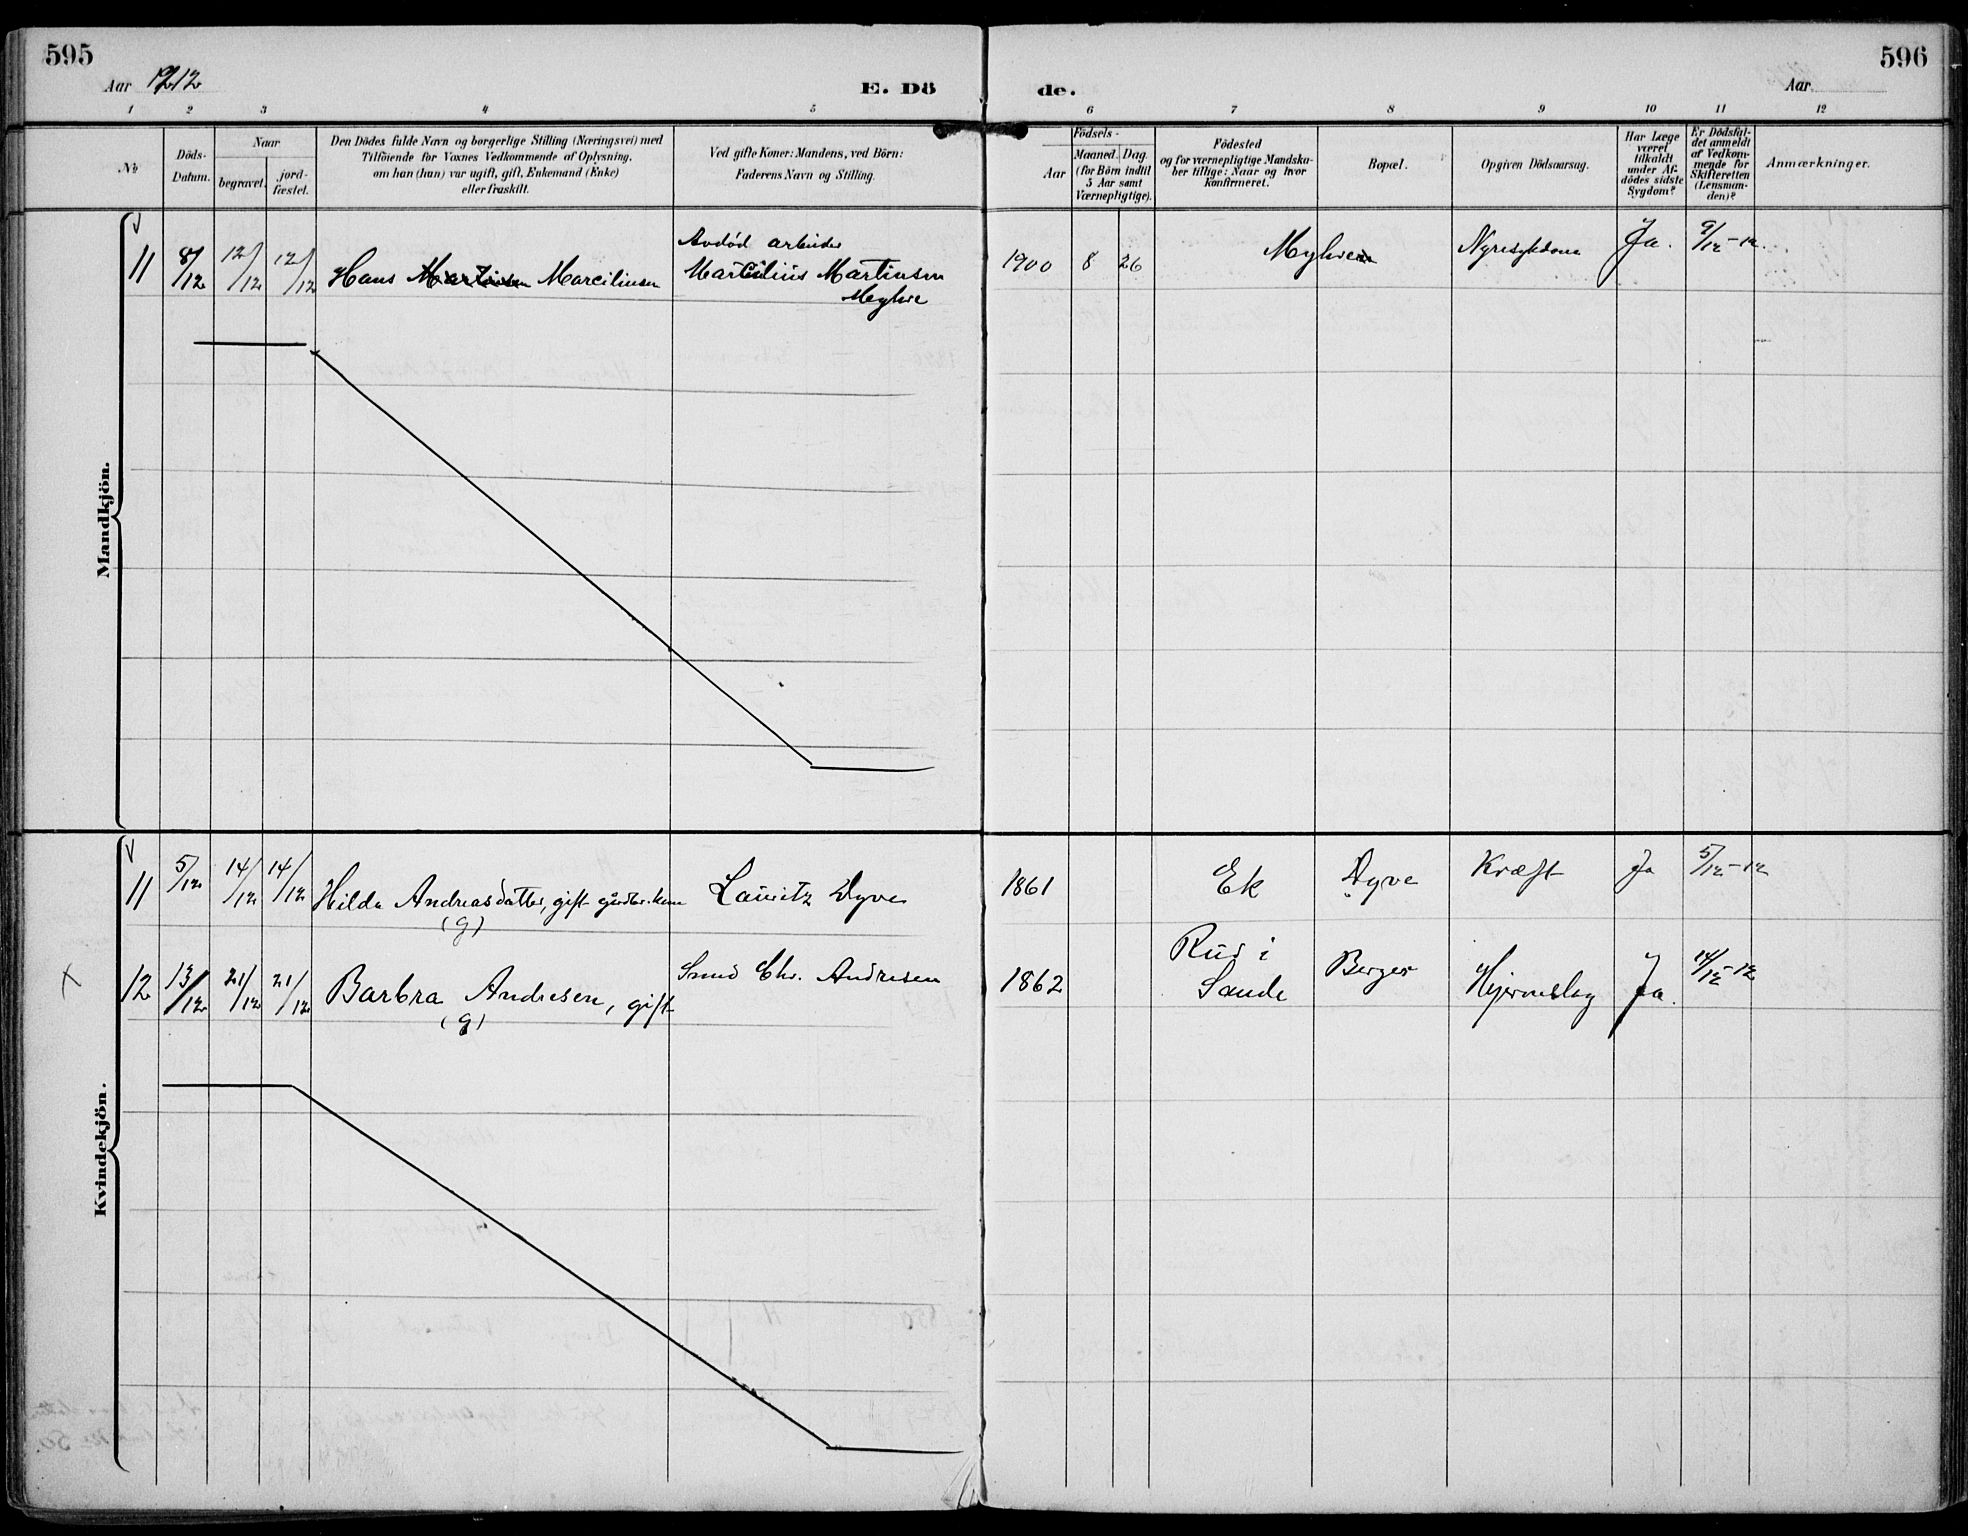 595
596
Aar 1912
E. Dö
de.
Aar
1 2 3 4 5 6 7 8 9 10 11 12
No
Döds-
Datum.
Naar
begravet.
jord-
fæstet.
Den Dödes fulde Navn og borgerlige Stilling (Næringsvei) med
Tilföiende for Voxnes Vedkommende af Oplysning,
om han (hun) var ugift, gift, Enkemand (Enke)
eller fraskilt.
Ved gifte Koner: Mandens, ved Börn:
Faderens Navn og Stilling.
Födsels-
Aar
Maaned. Dag.
(for Börn indtil
5 Aar samt
Værnepligtige).
Födested
og for værnepligtige Mandska-
ber tillige: Naar og hvor
konfirmeret.
Bopæl.
Opgiven Dödsaarsag.
Har Læge
været
tilkaldt
under Af-
dödes sidste
Sygdom?
Er Dödsfal-
det anmeldt
af Vedkom-
mende for
Skifteretten
(Lensman-
den)?
Anmærkninger.
Mandkjön.
11 8/12 12/12 12/12 Hans Martinsen Marciliusen
Avdød arbeider
Marcilius Martinsen
Myhre
1900 8 26 Myhren Nyresykdom Ja. 9/12-12.
Kvindekjön.
11 5/12 14/12 14/12 Hilda Andreasdatter, gift gårdbr.kone Lauritz Dyve 1861 Ek Dyve Kræft Ja 5/12-12
(g)
12 13/12 21/12 21/12 Barbra Andresen, gift
(g)
Smed Chr. Andresen 1862 Rud i
Sande
Berger Hjerneslag Ja. 14/12-12